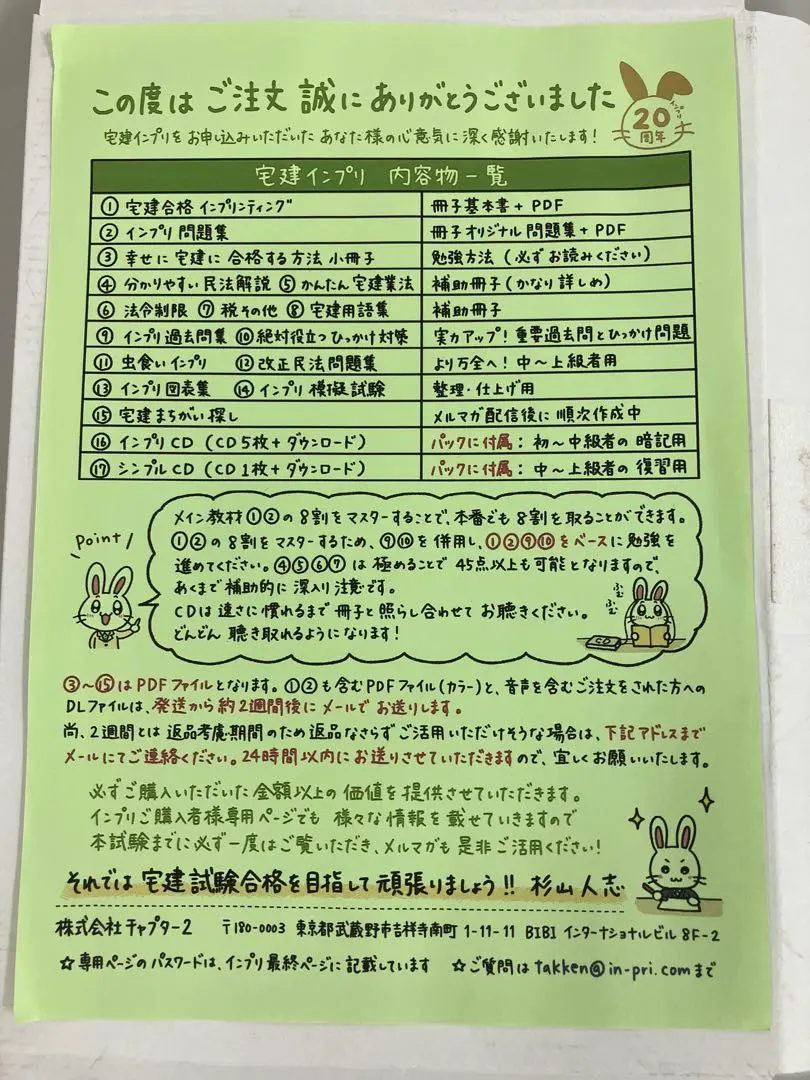 この度は ご注文 誠に ありがとうございました
インプリ
20
周年
宅建インプリを お申し込みいただいた あなた様の心意気に深く感謝いたします!
宅建インプリ 内容物一覧
① 宅建合格 インプリンティング 冊子基本書 + PDF
② インプリ 問題集 冊子オリジナル 問題集 + PDF
③ 幸せに 宅建に 合格する方法 小冊子 勉強方法 (必ずお読みください)
④ 分かりやすい 民法解説 ⑤ かんたん 宅建業法 補助冊子 (かなり 詳しめ)
⑥ 法令制限 ⑦ 税その他 ⑧ 宅建用語集 補助冊子
⑨ インプリ 過去問集 ⑩ 絶対役立つ ひっかけ 対策 実力アップ! 重要過去問とひっかけ問題
⑪ 虫食い インプリ ⑫ 改正民法問題集 より万全へ! 中〜上級者用
⑬ インプリ 図表集 ⑭ インプリ 模擬試験 整理・仕上げ用
⑮ 宅建 まちがい 探し メルマガ配信後に 順次作成中
⑯ インプリ CD (CD 5枚 + ダウンロード) パックに付属: 初〜中級者の 暗記用
⑰ シンプル CD (CD 1枚 + ダウンロード) パックに付属: 中〜上級者の 復習用
Point
メイン教材 ①②の 8割を マスターすることで、本番でも 8割を 取ることができます。
①②の 8割を マスターするため、⑨⑩を 併用し、①②⑨⑩を ベースに 勉強を
進めてください。④⑤⑥⑦ は 極めることで 45点以上も 可能となりますので、
あくまで 補助的に 深入り 注意です。
CDは 速さに 慣れるまで 冊子と 照らし合わせて お聴きください。
どんどん 聴き取れるようになります!
ふむ
ふむ
CD
③〜⑮は PDFファイルとなります。①②も含むPDFファイル(カラー)と、音声を含むご注文をされた方への
DLファイルは、発送から約2週間後にメールで お送りします。
尚、2週間とは 返品考慮期間のため 返品 なさらず ご活用 いただけそうな場合は、下記アドレスまで
メールにてご連絡ください。24時間以内に お送りさせていただきますので、宜しくお願いいたします。
必ずご購入いただいた 金額以上の 価値を 提供させていただきます。
インプリご購入者様専用ページでも 様々な 情報を 載せていきますので
本試験までに必ず一度はご覧いただき、メルマガも 是非 ご活用ください!
それでは 宅建試験合格を目指して 頑張りましょう!! 杉山 人志
株式会社 チャプター2 〒180-0003 東京都武蔵野市吉祥寺南町 1-11-11 BIBI インターナショナルビル 8F-2
☆専用ページの パスワードは、インプリ 最終ページに 記載しています ☆ご質問は takken@in-pri.com まで